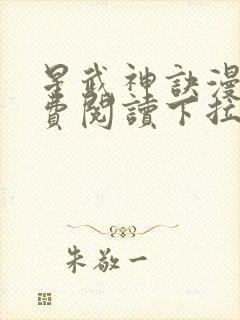 星武神訣漫
費閱讀下拉
朱敬一